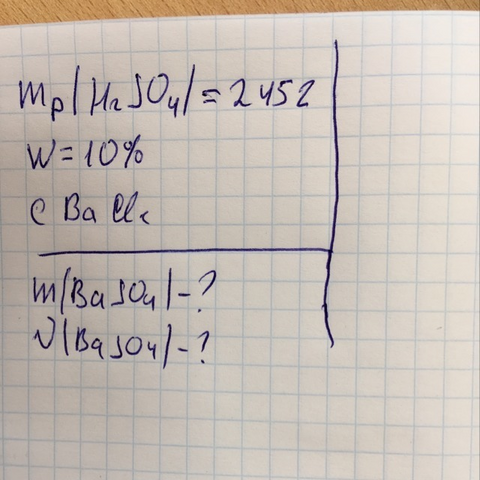 mр(H₂SO₄) = 245г
W = 10%
с BaCl₂
m(BaSO₄) - ?
ν(BaSO₄) - ?